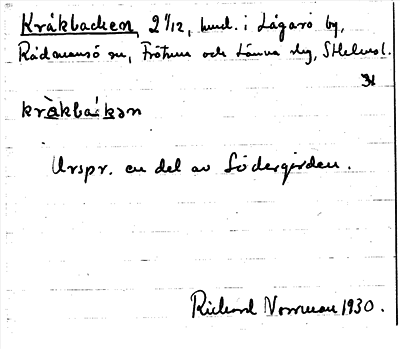 Kråkbacken, 2 1/12, hmd. i Lågarö by,
Rådmansö sn, Frötuna och Länna skg, Sthlmsl.
31
kråkbakən
Urspr. en del av Södergården.
Richard Norrman 1930.